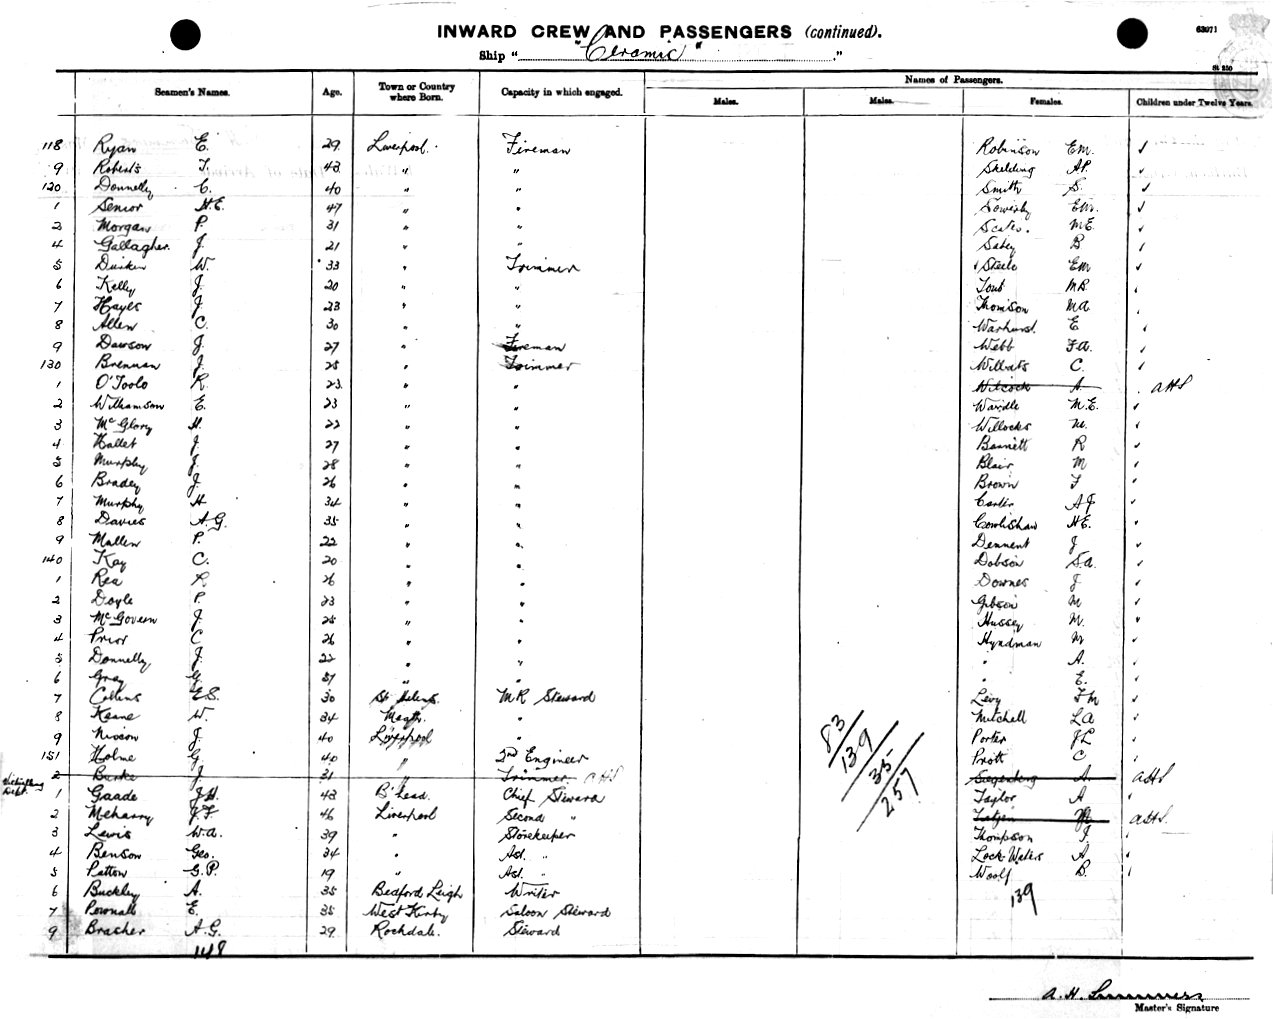 INWARD CREW AND PASSENGERS (continued).
63071
Ship "Ceramic"
St 250
Names of Passengers.
Seamen's Names. Age. Town or Country where Born. Capacity in which engaged. Males. Males. Females. Children under Twelve Years.
118 Ryan E. 29 Liverpool. Fireman Robinson EM. ✓
9 Roberts T. 43 " " Skelding AP. ✓
120 Donnelly C. 40 " " Smith S. ✓
1 Senior H.E. 47 " " Sowerby EM. ✓
2 Morgan P. 31 " " Scates. M.E. ✓
4 Gallagher. J. 21 " " B ✓
5 Durkin W. 33 " Trimmer Steele EM ✓
6 Kelly J. 20 " " MR ✓
7 Hayes J. 23 " " Thomson MA. ✓
8 Allen C. 30 " " Warhurst. E ✓
9 Dawson J. 27 " Fireman Webb F.A. ✓
130 Brennan J. 25 " Trimmer Willats C. ✓
1 O'Toole R. 23 " " Wilcock A. AHS
2 Williamson E. 23 " " Wardle M.E. ✓
3 McGlory H. 22 " " Willocks M. ✓
4 Hallet J. 27 " " Bannett R ✓
5 Murphy J. 28 " " Blair M ✓
6 Bradey J. 26 " " Brown F ✓
7 Murphy H 34 " " Carter AJ ✓
8 Davies A.G. 35 " " Cowlishaw H.E. ✓
9 Mallen P. 22 " " Dennent J ✓
140 Kay C. 20 " " Dobson S.A. ✓
1 Rea R 26 " " Downes J ✓
2 Doyle P. 23 " " Gibson M ✓
3 McGovern J. 25 " " Hussey M. ✓
4 Prior C 26 " " Hyndman M ✓
5 Donnelly J. 22 " " " A. ✓
6 Gray G. 21 " " " E. ✓
7 Collins E.S. 30 St Helens. M.R Steward Levy FM ✓
8 Keane W. 34 " Mitchell LA ✓
9 Nixon J. 40 Liverpool " Porter JL ✓
151 Holme G. 40 " 2nd Engineer Prott C ✓
2 Burke J 31 " Trimmer AHS A. AHS
Victualling Dept. 1 Gaade J.H. 43 B'head. Chief Steward Taylor A ✓
2 Meharry J.F. 46 Liverpool Second " M AHS.
3 Lewis W.A. 39 " Storekeeper Thompson J. ✓
4 Benson Geo. 34 " Ast. " Lock-Waters A. ✓
5 Patton G.P. 19 " Ast. " Woolf B. ✓
6 Buckley A. 35 Bedford Leigh Writer
7 Pownall E. 35 West Kirby Saloon Steward
9 Brasher A.G. 29 Rochdale. Steward
148
83/139/35/257
139
A. H. Summers
Master's Signature